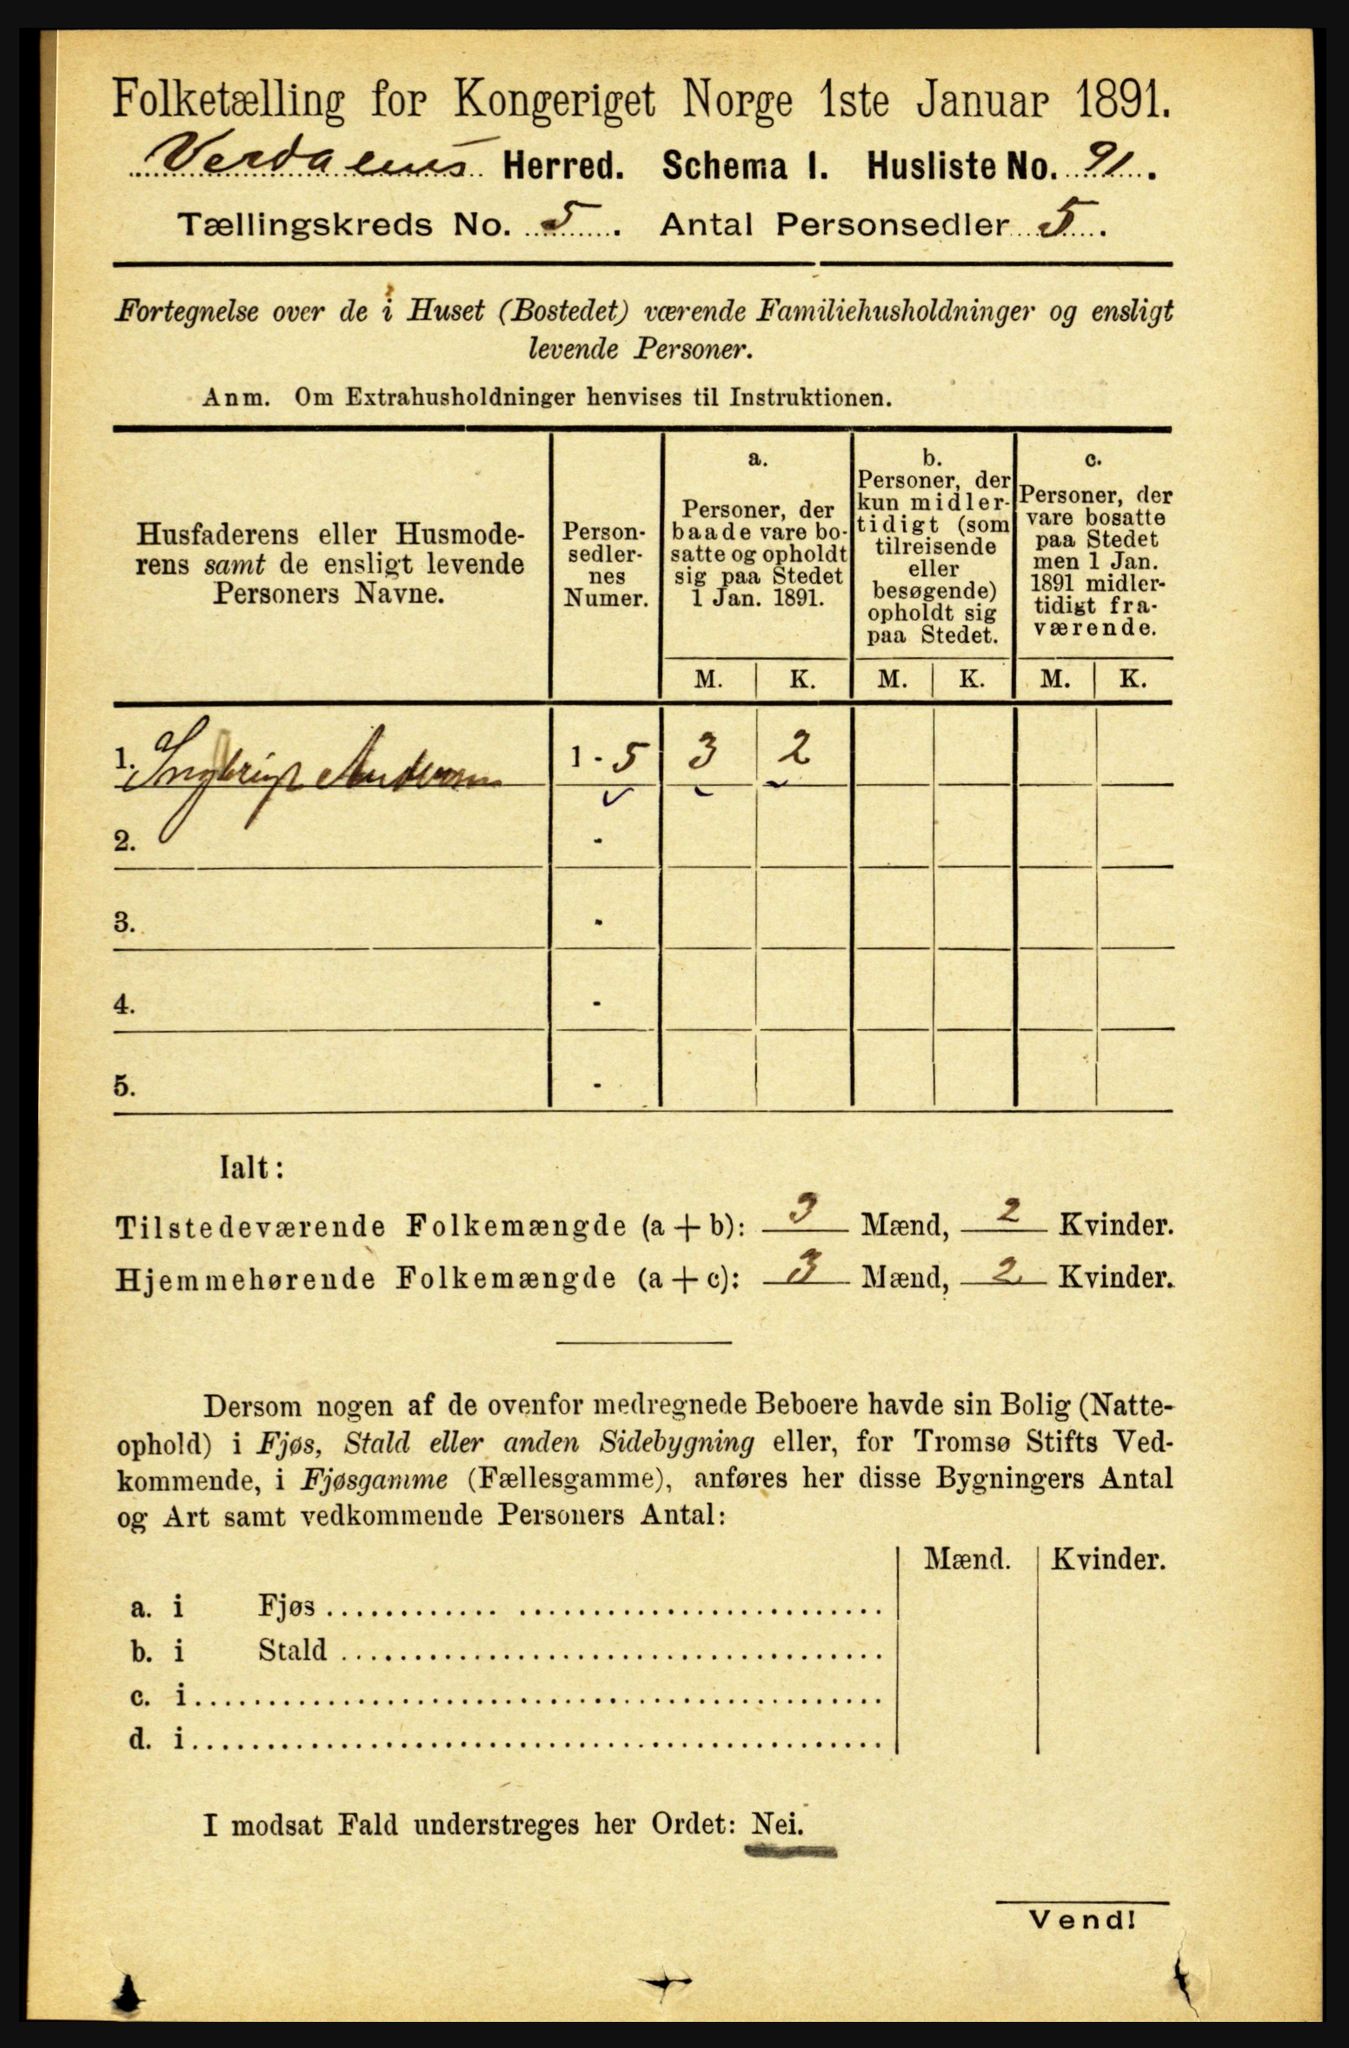 Folketælling for Kongeriget Norge 1ste Januar 1891.
Verdalens Herred. Schema I. Husliste No. 91.
Tællingskreds No. 5. Antal Personsedler 5.
Fortegnelse over de i Huset (Bostedet) værende Familiehusholdninger og ensligt
levende Personer.
Anm. Om Extrahusholdninger henvises til Instruktionen.
Husfaderens eller Husmode-
rens samt de ensligt levende
Personers Navne.
Person-
sedler-
nes
Numer.
a.
Personer, der
baade vare bo-
satte og opholdt
sig paa Stedet
1 Jan. 1891.
b.
Personer, der
kun midler-
tidigt (som
tilreisende
eller
besøgende)
opholdt sig
paa Stedet.
c.
Personer, der
vare bosatte
paa Stedet
men 1 Jan.
1891 midler-
tidigt fra-
værende.
M. K. M. K. M. K.
1. Ingbrigt Andersen 1 - 5 3 2
2. -
3. -
4. -
5. -
Ialt:
Tilstedeværende Folkemængde (a + b): 3 Mænd, 2 Kvinder.
Hjemmehørende Folkemængde (a + c): 3 Mænd, 2 Kvinder.
Dersom nogen af de ovenfor medregnede Beboere havde sin Bolig (Natte-
ophold) i Fjøs, Stald eller anden Sidebygning eller, for Tromsø Stifts Ved-
kommende, i Fjøsgamme (Fællesgamme), anføres her disse Bygningers Antal
og Art samt vedkommende Personers Antal:
Mænd. Kvinder.
a. i Fjøs
b. i Stald
c. i
d. i
I modsat Fald understreges her Ordet: Nei.
Vend!